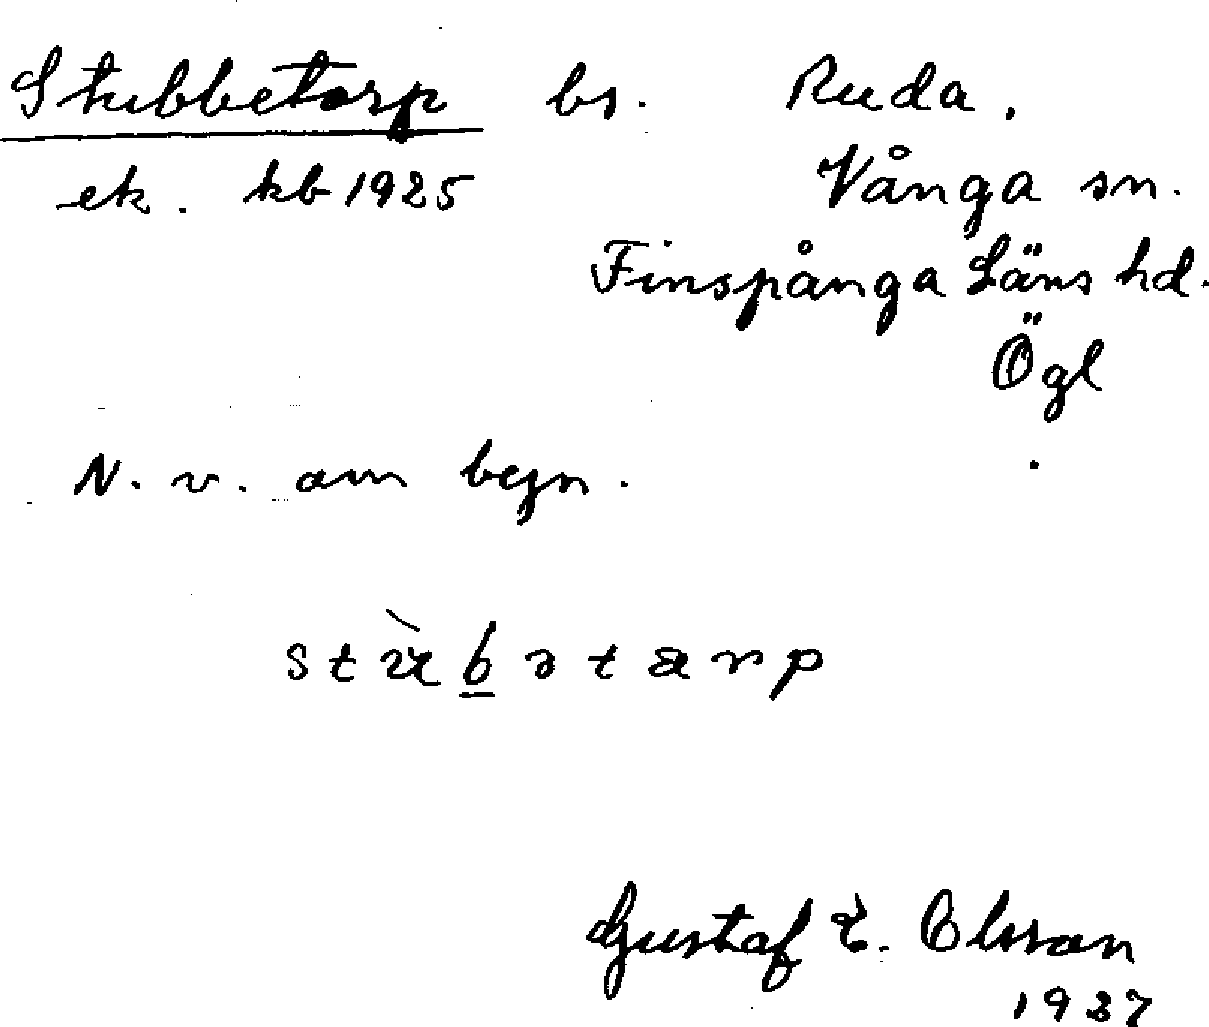 Stubbetorp bs. Ruda.
ek. kb 1925 Vånga sn.
Finspånga Läns hd.
Ögl
N. v. om begn.
stu̇̀b̲ətarp
Gustaf E. Olsson
1937